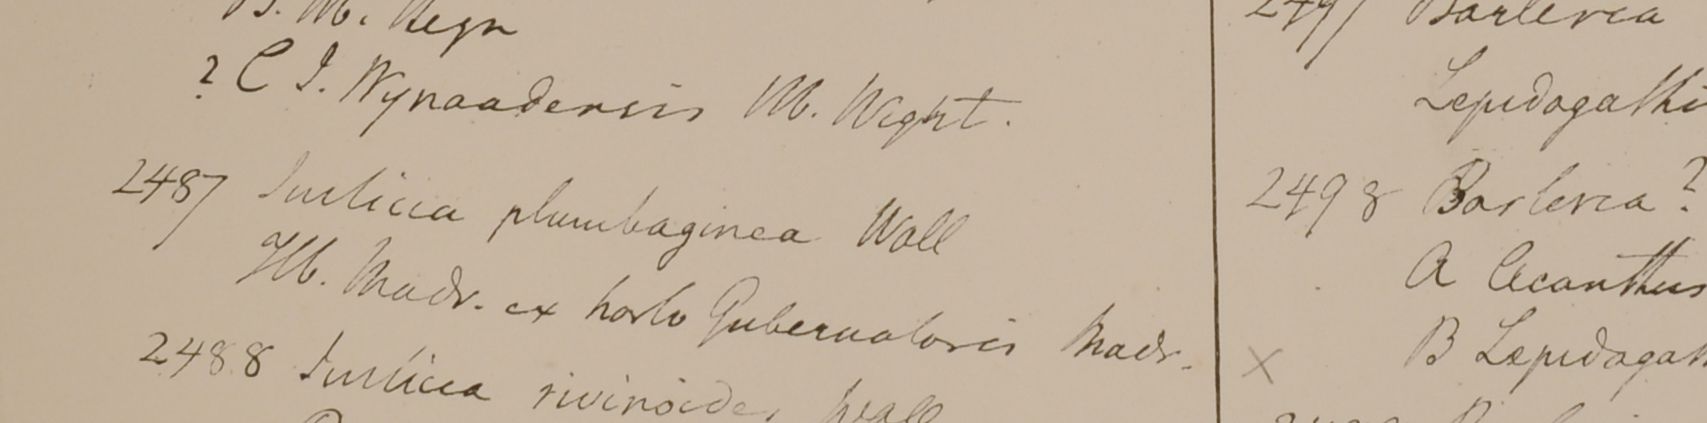 B. M. Heyn
? C J. Wynaadensis M. Wight.
2487 Justicia plumbaginea Wall
Hb. Madr. ex horto Gubernatoris Madr.
2488 Justicia rivinoides Wall
2497 Barleria
Lepidagathi
2498 Barleria?
A Acanthus
X B Lepidagat